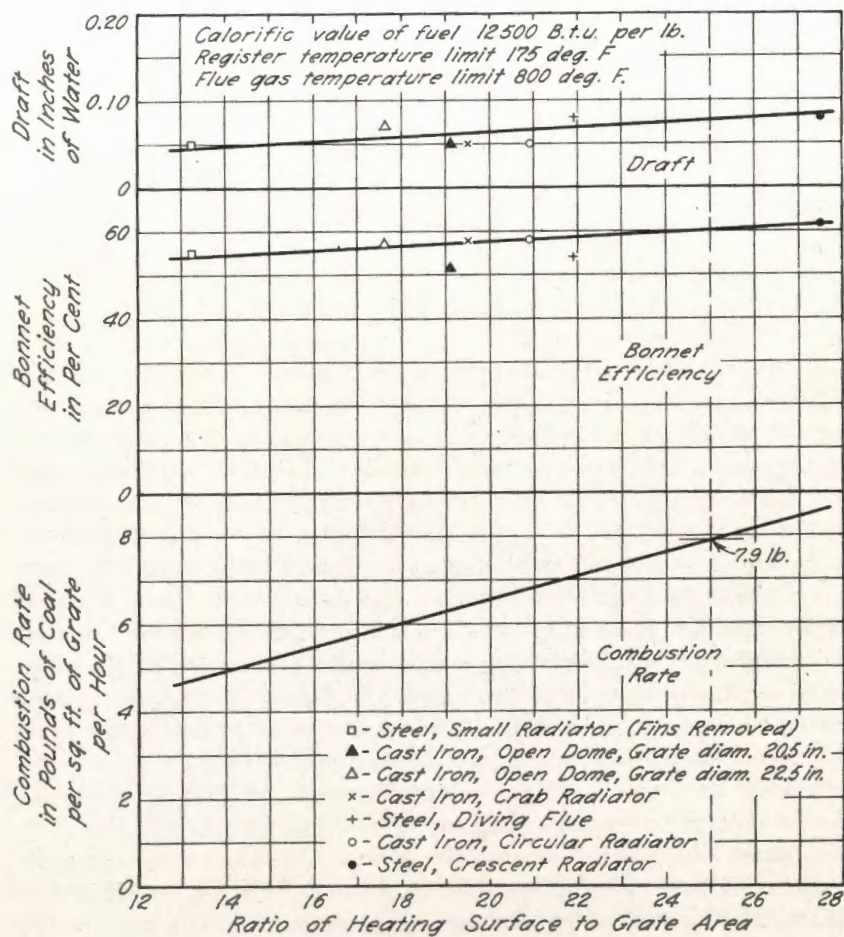 Calorific value of fuel 12500 B.t.u. per lb.
Register temperature limit 175 deg. F
Flue gas temperature limit 800 deg. F.
Draft
in Inches
of Water
0.20
0.10
0
Draft
Bonnet
Efficiency
in Per Cent
60
40
20
0
Bonnet
Efficiency
Combustion Rate
in Pounds of Coal
per sq. ft. of Grate
per Hour
8
6
4
2
0
7.9 lb.
Combustion
Rate
□ - Steel, Small Radiator (Fins Removed)
▲ - Cast Iron, Open Dome, Grate diam. 20.5 in.
△ - Cast Iron, Open Dome, Grate diam. 22.5 in.
× - Cast Iron, Crab Radiator
+ - Steel, Diving Flue
○ - Cast Iron, Circular Radiator
● - Steel, Crescent Radiator
12 14 16 18 20 22 24 26 28
Ratio of Heating Surface to Grate Area